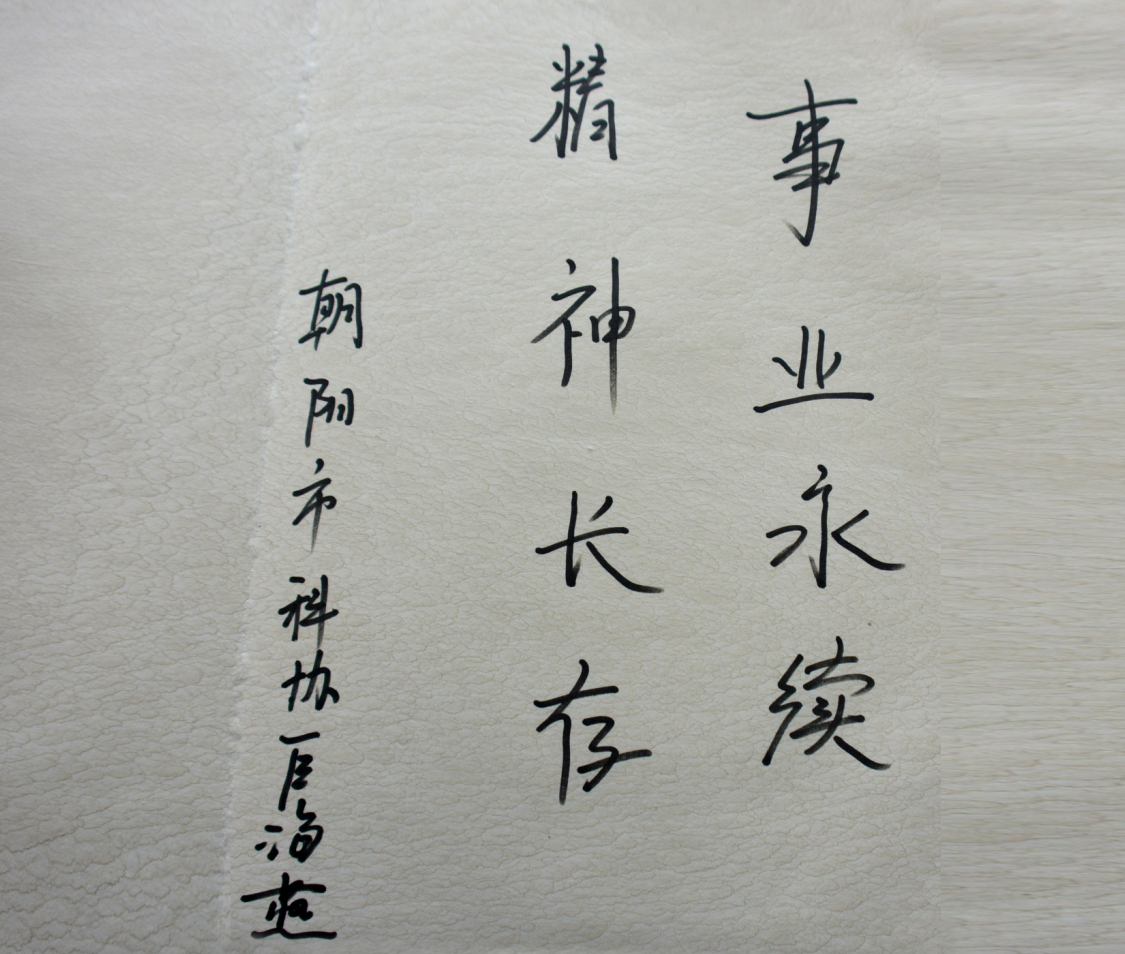 事业永续
精神长存
朝阳市科协 海燕